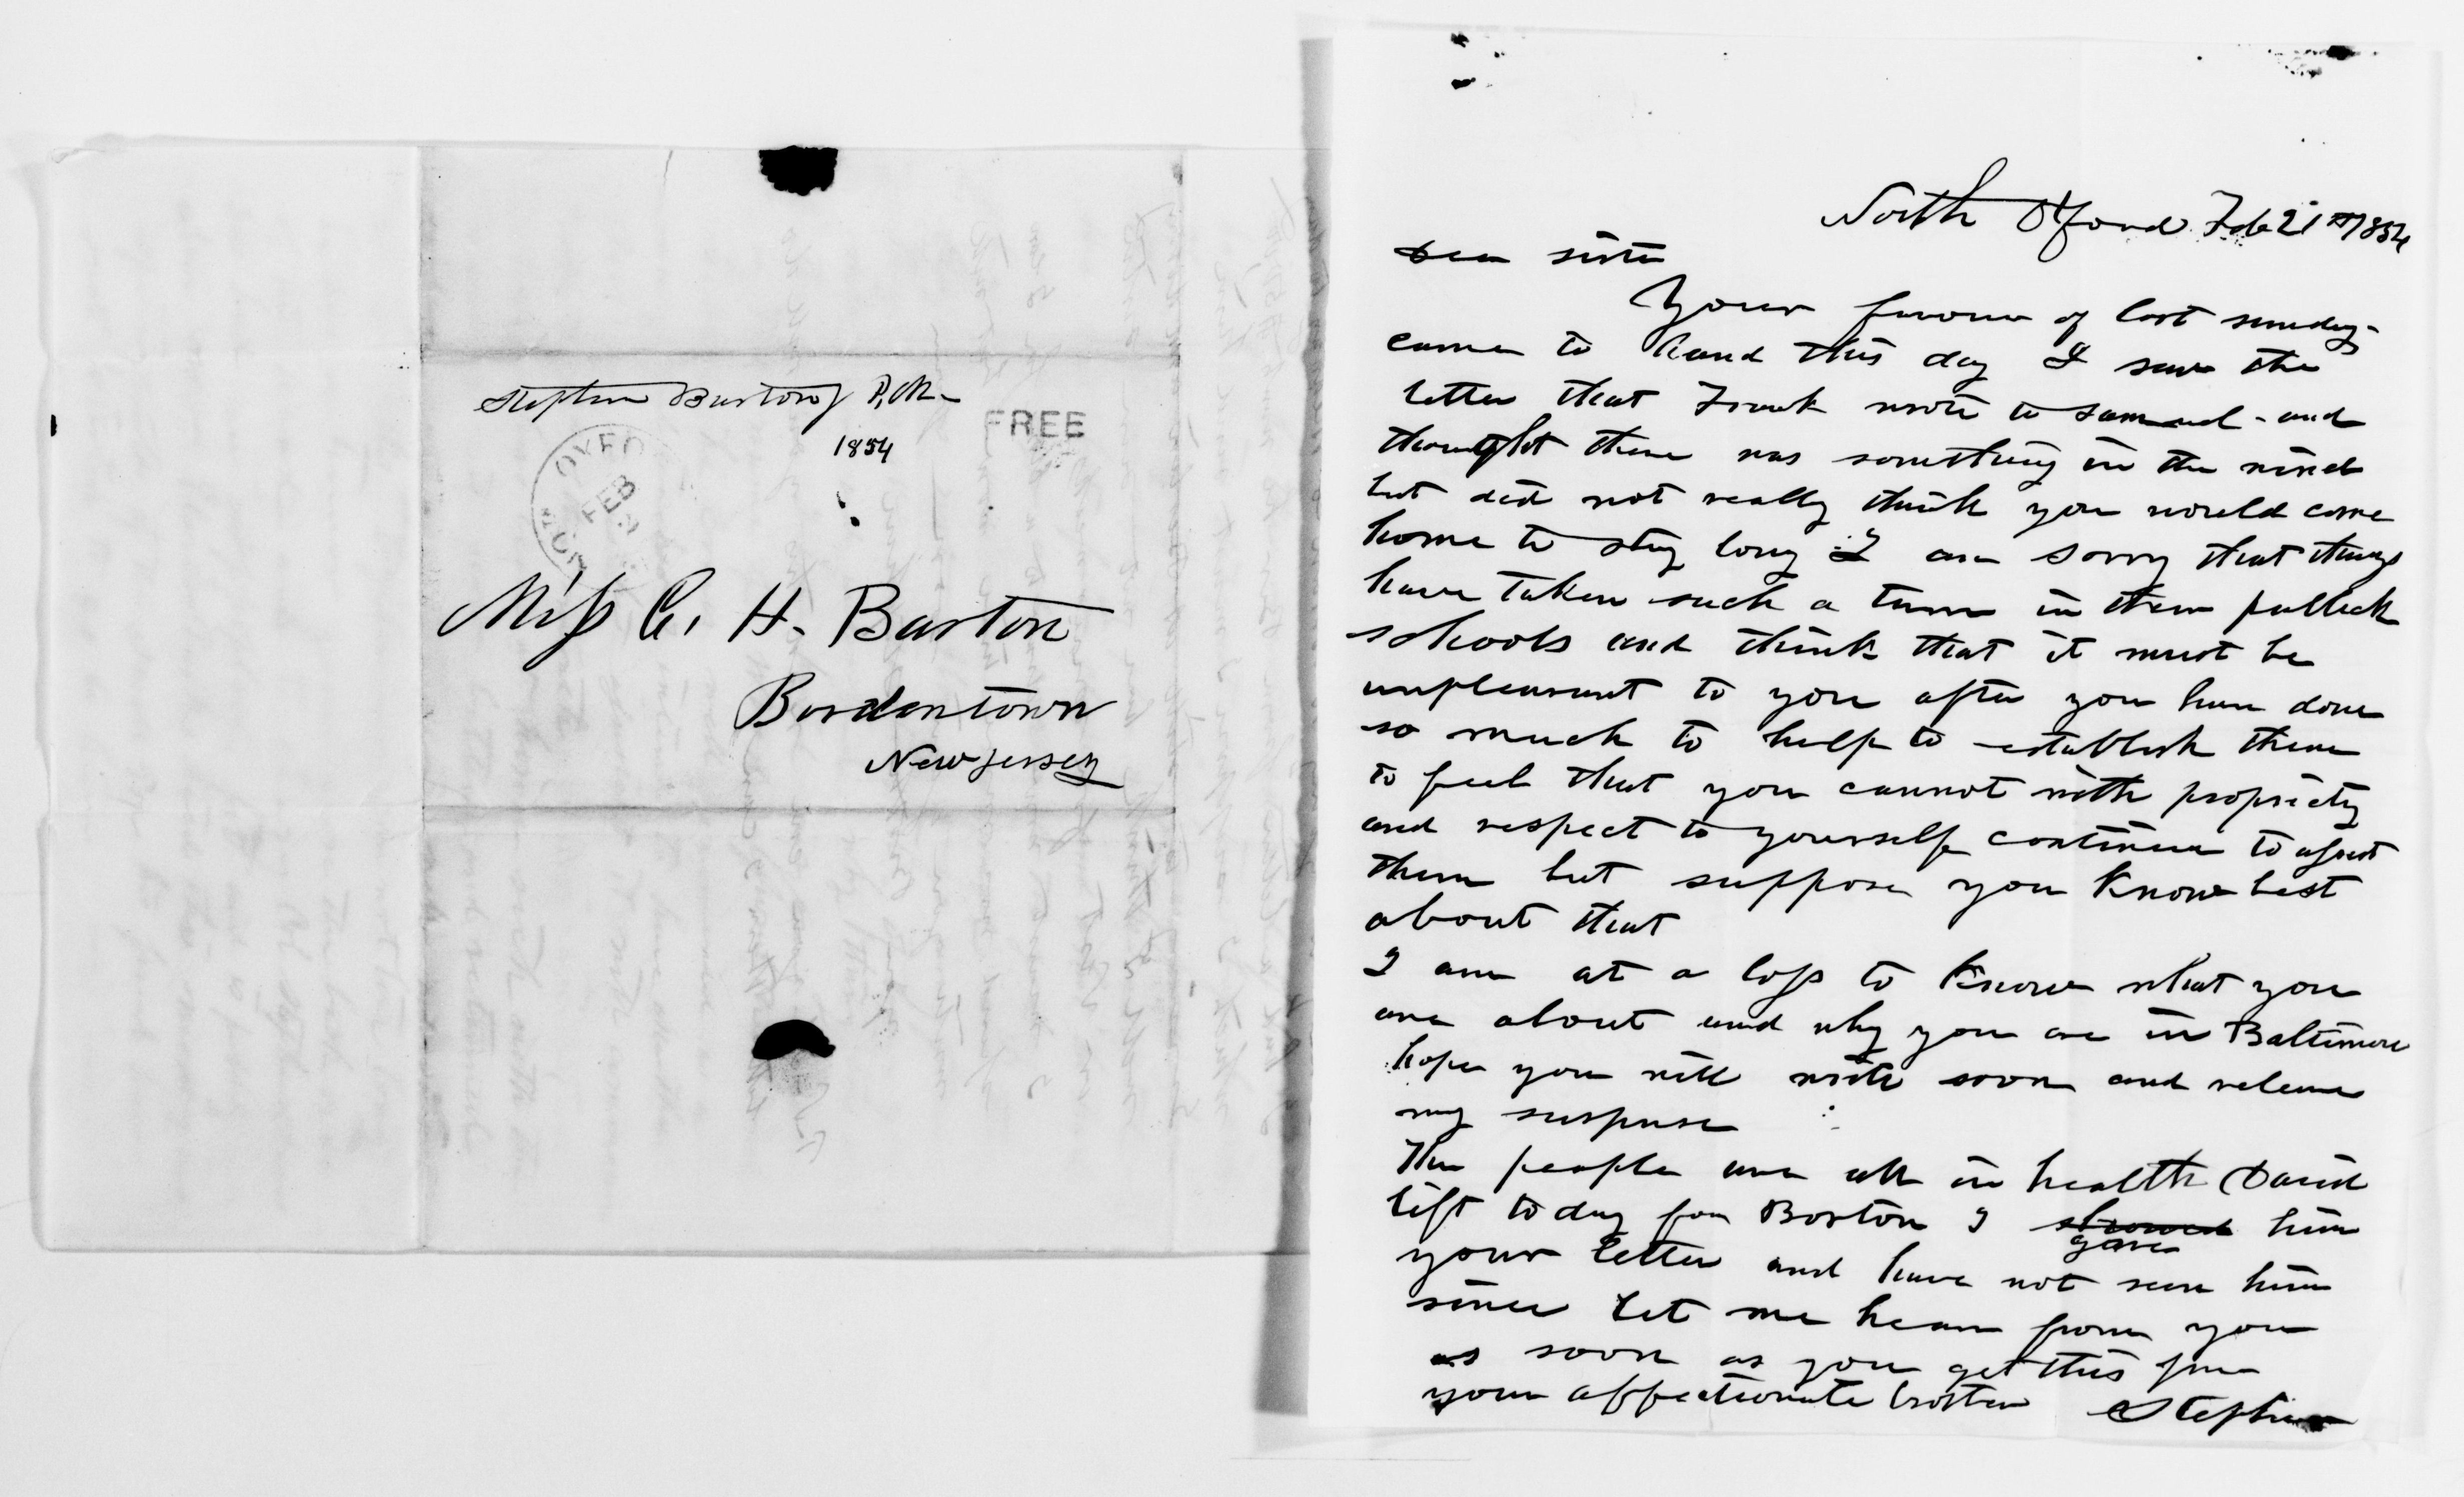 Stephen Barton J P, M.
1854
FREE
OXFO
FEB
Miss C. H. Barton
Bordentown
New Jersey
North Oxford Feb 21st 1854
Dear sister
Your favour of last sunday
came to hand this day I saw the
letter that Frank wrote to Samuel - and
thought there was something in the wind
but did not really think you would come
home to stay long I am sorry that things
have taken such a turn in them publick
schools and think that it must be
unpleasant to you after you have done
so much to help to establish them
to feel that you cannot with propriety
and respect to yourself continue to assist
them but suppose you know best
about that
I am at a loss to know what you
are about and why you are in Baltimore
hope you will write soon and releave
my suspense
The people are all in health David
left to day for Boston I showed him
gave
your letter and have not seen him
since let me hear from you
as soon as you get this from
your affectionate brother Stephen